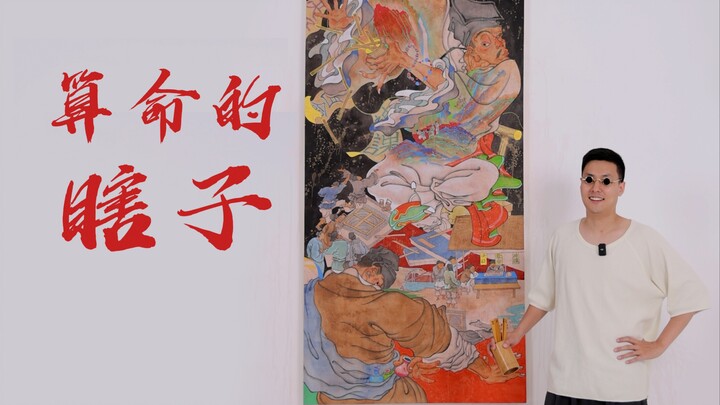 算命的
瞎子